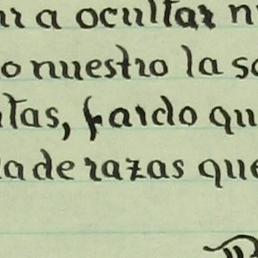 ir a ocultar n
o nuestro la s
tas, fardo qu
a de razas que